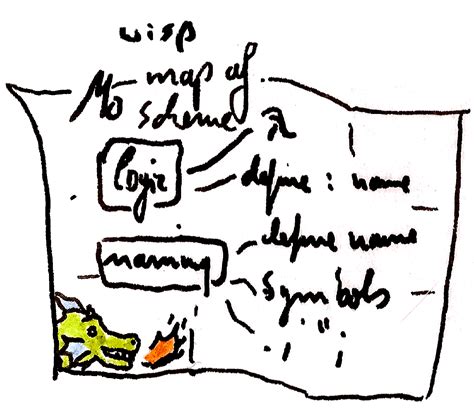 wisp
map of
scheme
logic
λ
define : name
naming
define name
symbols
. ' " ;